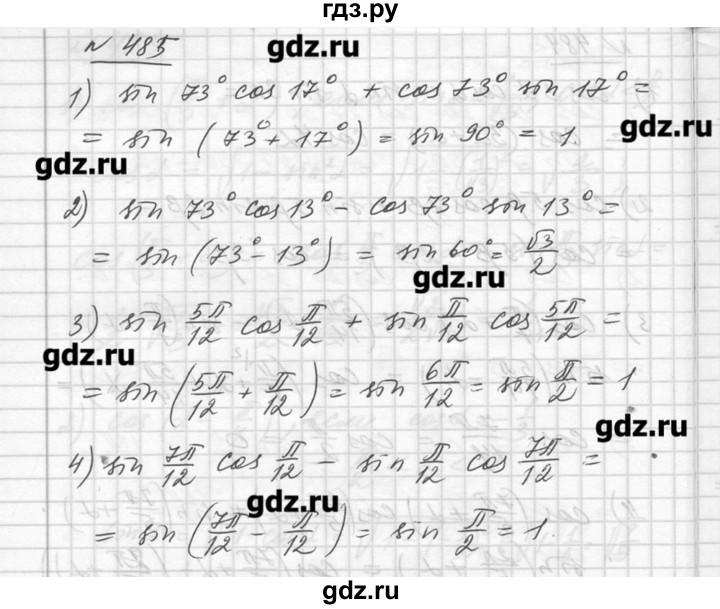 гдз.ру
№ 485
gdz.ru
1) sin 73° cos 17° + cos 73° sin 17° =
= sin (73° + 17°) = sin 90° = 1.
gdz.ru
gdz.ru
2) sin 73° cos 13° - cos 73° sin 13° =
= sin (73° - 13°) = sin 60° = √3/2
gdz.ru
3) sin 5π/12 cos π/12 + sin π/12 cos 5π/12 =
gdz.ru
= sin (5π/12 + π/12) = sin 6π/12 = sin π/2 = 1
gdz.ru
4) sin 7π/12 cos π/12 - sin π/12 cos 7π/12 =
gdz.ru
= sin (7π/12 - π/12) = sin π/2 = 1.
gdz.ru